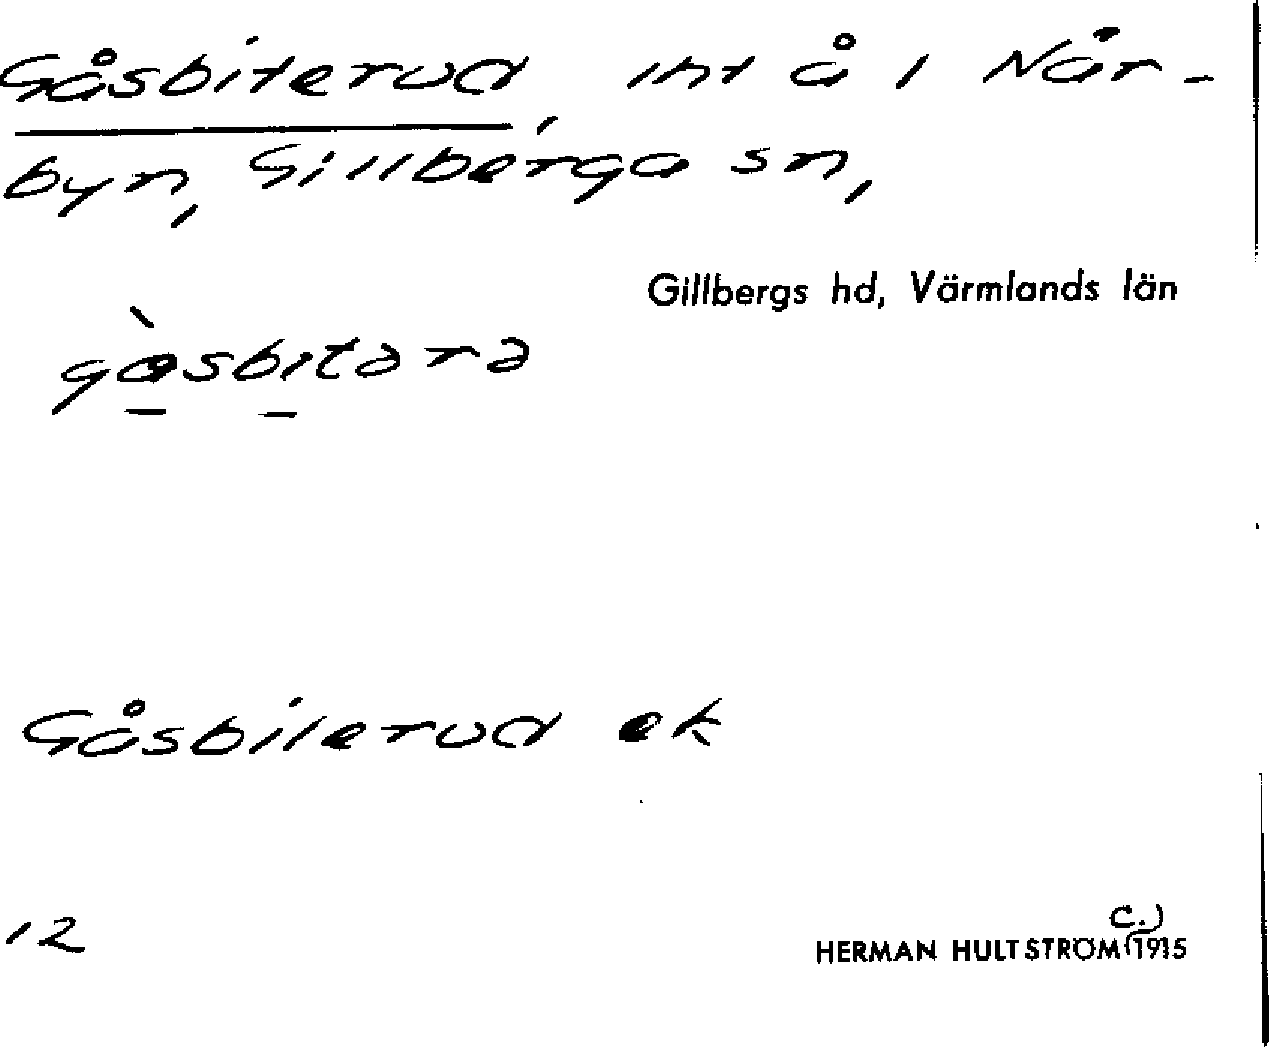 Gåsbiterud, int å i När-
byn, Gillberga sn,
Gillbergs hd, Värmlands län
gåsbitərə
Gåsbiterud ek
12
HERMAN HULTSTRÖM (c.) 1915